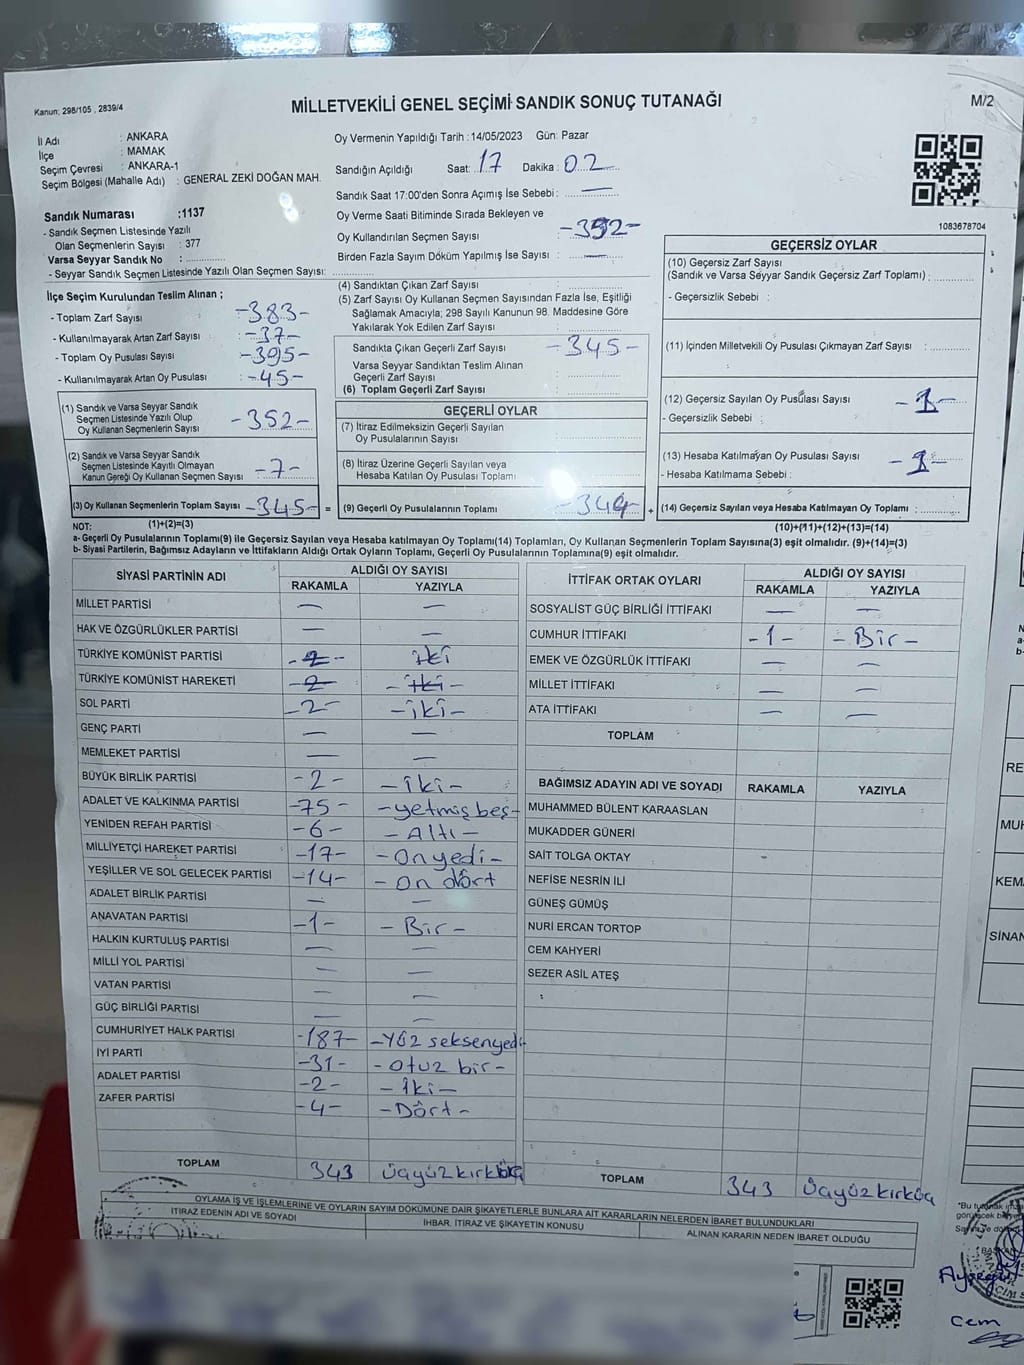 Kanun; 298/105 , 2839/4
MİLLETVEKİLİ GENEL SEÇİMİ SANDIK SONUÇ TUTANAĞI
M/2
İl Adı : ANKARA
İlçe : MAMAK
Seçim Çevresi : ANKARA-1
Seçim Bölgesi (Mahalle Adı) : GENERAL ZEKİ DOĞAN MAH.
Oy Vermenin Yapıldığı Tarih : 14/05/2023 Gün: Pazar
Sandığın Açıldığı Saat: 17 Dakika: 02
Sandık Saat 17:00'den Sonra Açımış İse Sebebi :
Oy Verme Saati Bitiminde Sırada Bekleyen ve
Oy Kullandırılan Seçmen Sayısı -352-
Birden Fazla Sayım Döküm Yapılmış İse Sayısı :
1083678704
Sandık Numarası :1137
- Sandık Seçmen Listesinde Yazılı
Olan Seçmenlerin Sayısı : 377
Varsa Seyyar Sandık No :
- Seyyar Sandık Seçmen Listesinde Yazılı Olan Seçmen Sayısı:
İlçe Seçim Kurulundan Teslim Alınan ;
- Toplam Zarf Sayısı -383-
- Kullanılmayarak Artan Zarf Sayısı :-37-
- Toplam Oy Pusulası Sayısı -395-
- Kullanılmayarak Artan Oy Pusulası :-45-
(1) Sandık ve Varsa Seyyar Sandık
Seçmen Listesinde Yazılı Olup
Oy Kullanan Seçmenlerin Sayısı -352-
(2) Sandık ve Varsa Seyyar Sandık
Seçmen Listesinde Kayıtlı Olmayan
Kanun Gereği Oy Kullanan Seçmen Sayısı -7-
(3) Oy Kullanan Seçmenlerin Toplam Sayısı -345- =
(1)+(2)=(3)
(4) Sandıktan Çıkan Zarf Sayısı :
(5) Zarf Sayısı Oy Kullanan Seçmen Sayısından Fazla İse, Eşitliği
Sağlamak Amacıyla; 298 Sayılı Kanunun 98. Maddesine Göre
Yakılarak Yok Edilen Zarf Sayısı :
Sandıkta Çıkan Geçerli Zarf Sayısı -345-
Varsa Seyyar Sandıktan Teslim Alınan
Geçerli Zarf Sayısı :
(6) Toplam Geçerli Zarf Sayısı :
GEÇERLİ OYLAR
(7) İtiraz Edilmeksizin Geçerli Sayılan
Oy Pusulalarının Sayısı :
(8) İtiraz Üzerine Geçerli Sayılan veya
Hesaba Katılan Oy Pusulası Toplamı :
(9) Geçerli Oy Pusulalarının Toplamı -344- +
GEÇERSİZ OYLAR
(10) Geçersiz Zarf Sayısı
(Sandık ve Varsa Seyyar Sandık Geçersiz Zarf Toplamı) :
- Geçersizlik Sebebi :
(11) İçinden Milletvekili Oy Pusulası Çıkmayan Zarf Sayısı :
(12) Geçersiz Sayılan Oy Pusulası Sayısı -1-
- Geçersizlik Sebebi :
(13) Hesaba Katılmayan Oy Pusulası Sayısı -1-
- Hesaba Katılmama Sebebi :
(14) Geçersiz Sayılan veya Hesaba Katılmayan Oy Toplamı :
(10)+(11)+(12)+(13)=(14)
NOT:
a- Geçerli Oy Pusulalarının Toplamı(9) ile Geçersiz Sayılan veya Hesaba katılmayan Oy Toplamı(14) Toplamları, Oy Kullanan Seçmenlerin Toplam Sayısına(3) eşit olmalıdır. (9)+(14)=(3)
b- Siyasi Partilerin, Bağımsız Adayların ve İttifakların Aldığı Ortak Oyların Toplamı, Geçerli Oy Pusulalarının Toplamına(9) eşit olmalıdır.
SİYASİ PARTİNİN ADI ALDIĞI OY SAYISI
RAKAMLA YAZIYLA
MİLLET PARTİSİ — —
HAK VE ÖZGÜRLÜKLER PARTİSİ — —
TÜRKİYE KOMÜNİST PARTİSİ -2- iki
TÜRKİYE KOMÜNİST HAREKETİ -2- -iki-
SOL PARTİ -2- -iki-
GENÇ PARTİ — —
MEMLEKET PARTİSİ — —
BÜYÜK BİRLİK PARTİSİ -2- -iki-
ADALET VE KALKINMA PARTİSİ -75- -yetmiş beş-
YENİDEN REFAH PARTİSİ -6- -Altı-
MİLLİYETÇİ HAREKET PARTİSİ -17- -Onyedi-
YEŞİLLER VE SOL GELECEK PARTİSİ -14- -on dört
ADALET BİRLİK PARTİSİ — —
ANAVATAN PARTİSİ -1- -Bir-
HALKIN KURTULUŞ PARTİSİ — —
MİLLİ YOL PARTİSİ — —
VATAN PARTİSİ — —
GÜÇ BİRLİĞİ PARTİSİ — —
CUMHURİYET HALK PARTİSİ -187- -Yüz seksenyedi-
İYİ PARTİ -31- -Otuz bir-
ADALET PARTİSİ -2- -İki-
ZAFER PARTİSİ -4- -Dört-
TOPLAM 343
İTTİFAK ORTAK OYLARI ALDIĞI OY SAYISI
RAKAMLA YAZIYLA
SOSYALİST GÜÇ BİRLİĞİ İTTİFAKI — —
CUMHUR İTTİFAKI -1- -Bir-
EMEK VE ÖZGÜRLÜK İTTİFAKI — —
MİLLET İTTİFAKI — —
ATA İTTİFAKI — —
TOPLAM
BAĞIMSIZ ADAYIN ADI VE SOYADI RAKAMLA YAZIYLA
MUHAMMED BÜLENT KARAASLAN
MUKADDER GÜNERİ
SAİT TOLGA OKTAY
NEFİSE NESRİN İLİ
GÜNEŞ GÜMÜŞ
NURİ ERCAN TORTOP
CEM KAHYERİ
SEZER ASİL ATEŞ
TOPLAM 343
OYLAMA İŞ VE İŞLEMLERİNE VE OYLARIN SAYIM DÖKÜMÜNE DAİR ŞİKAYETLERLE BUNLARA AİT KARARLARIN NELERDEN İBARET BULUNDUKLARI
İTİRAZ EDENİN ADI VE SOYADI
İHBAR, İTİRAZ VE ŞİKAYETİN KONUSU
ALINAN KARARIN NEDEN İBARET OLDUĞU
Cem